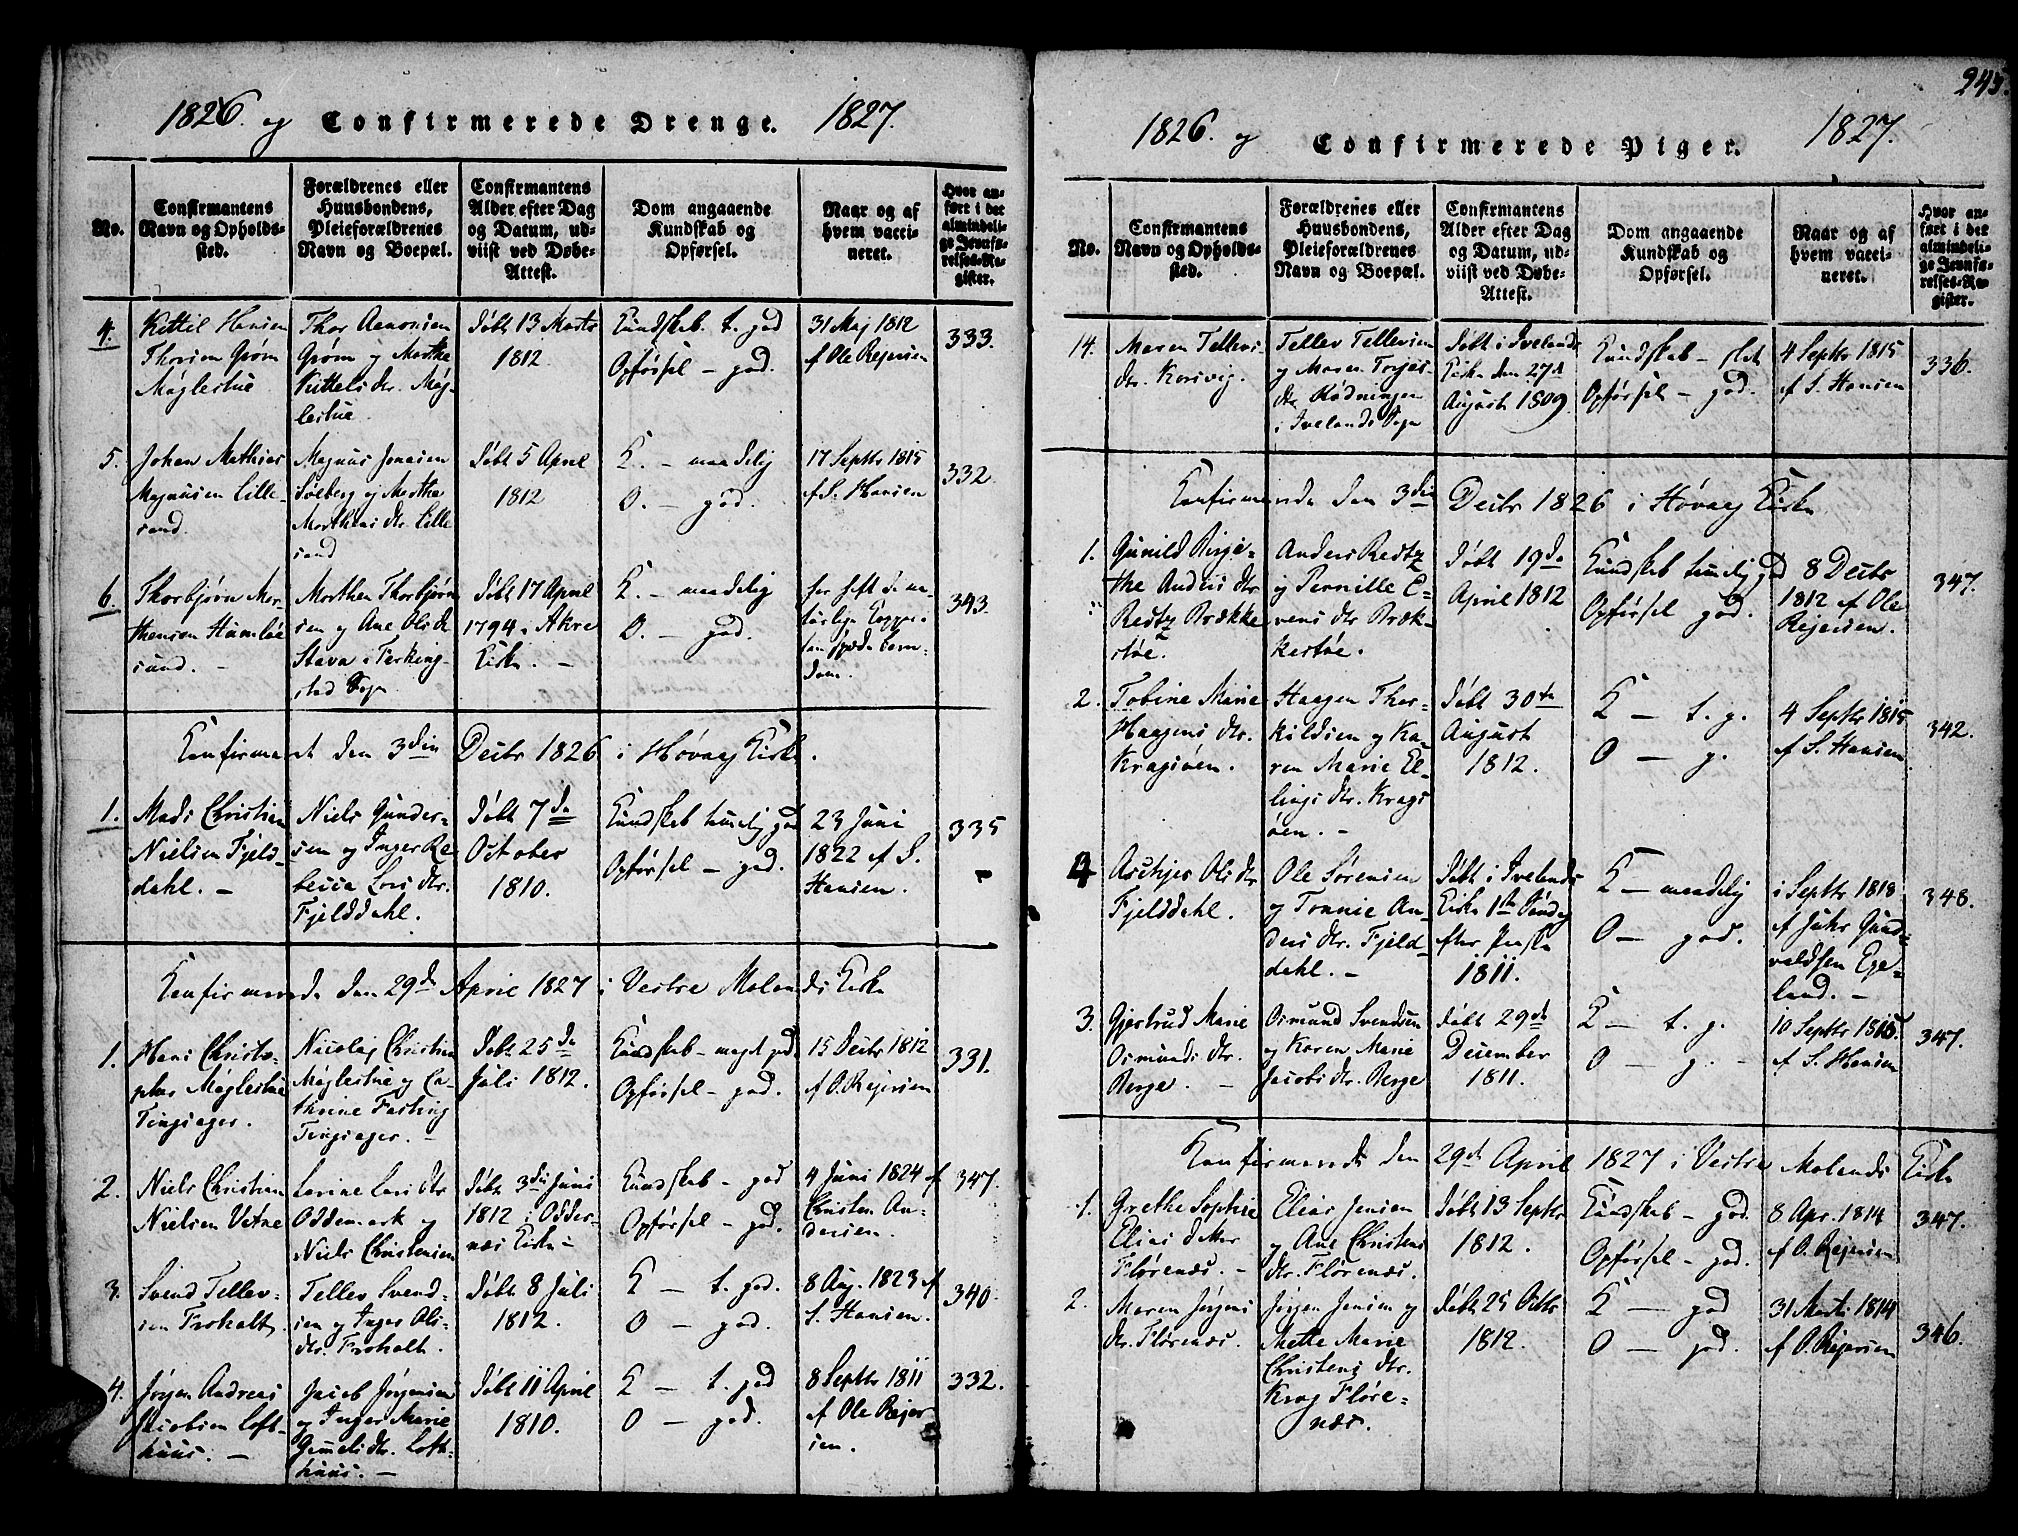 1826. og Confirmerede Drenge. 1827.
No.
Confirmantens
Navn og Opholds-
sted.
Forældrenes eller
Huusbondens,
Pleieforældrenes
Navn og Boepæl.
Confirmantens
Alder efter Dag
og Datum, ud-
viist ved Døbe-
Attest.
Dom angaaende
Kundskab og
Opførsel.
Naar og af
hvem vacci-
neret.
Hvor an-
ført i det
almindeli-
ge Jevnfø-
relses-Re-
gister.
4.
Kittil Hansen
Thorsen Grøm
Møglestue
Thor Aanonsen
Grøm og Marthe
Kittels dtr. Møg-
lestue.
døbt 13 Marts
1812.
Kundskab. t. god
Opførsel - god.
31 Maj 1812
af Ole Rejersen
333.
5.
Johan Mathias
Magnusen Lille-
sand.
Magnus Jonasen
Søeberg og Marthe
Morthens dtr. Lille
sand
døbt 5 April
1812
K. - maadelig
O. - god.
17 Septbr 1815
af S. Hansen
332.
6.
Thorbjørn Mor-
thensen Humløe
sund. -
Morthen Thorbjørn
sen og Ane Olsdtr
Stava i Ferking-
stad Sogn
døbt 17 April
1794 i Akre
Kirke. -
K. - maadelig
O. - god.
har haft de na-
turlige Kopper
som spæde barn-
dom.
343.
Confirmeret den 3die Decbr 1826 i Høvaag Kirke.
1.
Mads Christian
Nielsen Fjeld-
dahl. -
Niels Gunder-
sen og Inger Re-
becca Lars dtr.
Fjelddahl.
døbt 7de
October
1810.
Kundskab temmelig god
Opførsel - god.
23 Juni
1822 af S.
Hansen.
335
Confirmerede den 29de April 1827 i Vestre Molands Kirke
1.
Hans Christo-
pher Møglestue
Tingsager.
Nicolaj Christian
Møglestue og Ca-
thrine Fasting
Tingsager. -
døbt 25de
Juli 1812.
Kundskab - meget god
Opførsel - god.
15 Decbr 1812
af O. Rejersen
331.
2.
Niels Christian
Nielsen Vetne
Larine Lars dtr
Oddemark og
Niels Christensen
døbt 3die Juni
1812 i Odder-
næs Kirke -
Kundskab - god
Opførsel - god.
4 Juni 1824 af
Christen An-
dersen.
347.
3.
Svend Tellev-
sen Troholt.
Tellev Svend-
sen og Inger Ols-
dtr. Troholt.
døbt 8 Juli
1812.
K - t. god.
O - god.
8 Aug. 1823 af
S. Hansen.
340
4.
Jørgen Andreas
Jacobsen Loft-
huus. -
Jacob Jørgensen
og Inger Marie
Gumels dtr. Loft-
huus. -
døbt 11 April
1810.
K - t. god
O - god.
8 Septbr 1811
af Ole Rejer
sen.
332.
245.
1826. og Confirmerede Piger. 1827.
No.
Confirmantens
Navn og Opholds-
sted.
Forældrenes eller
Huusbondens,
Pleieforældrenes
Navn og Boepæl.
Confirmantens
Alder efter Dag
og Datum, ud-
viist ved Døbe-
Attest.
Dom angaaende
Kundskab og
Opførsel.
Naar og af
hvem vacci-
neret.
Hvor an-
ført i det
almindeli-
ge Jevnfø-
relses-Re-
gister.
14.
Maren Tellevs
dtr. Korsvig.
Tellev Tellevsen
og Maren Torjus
dtr Rødningen
i Ivelands Sogn
døbt i Ivelands
Kirke den 27de
August 1809.
Kundskab - slet
Opførsel - god.
4 Septbr 1815
af S. Hansen
336.
Confirmerede den 3die Decbr 1826 i Høvaag Kirke
1.
Gunild Birgi-
the Anders dtr
Reitz Brække
støe.
Anders Reitz
og Pernille E-
vens dtr Bræk-
kestøe.
døbt 19de
April 1812
Kundskab temmelig god
Opførsel god.
8 Decbr
1812 af Ole
Rejersen.
347.
2.
Tobine Marie
Haagens dtr.
Kragsøen.
Haagen Thor-
kildsen og Ka-
ren Marie El-
lings dtr. Krags
øen. -
døbt 30te
August
1812.
K - t. g.
O - g.
4 Septbr 1815
af S. Hansen
342.
4
Aschjer Ols dtr
Fjelddahl.
Ole Sørensen
og Tonnie An-
ders dtr. Fjeld
dahl. -
døbt i Ivelands
Kirke 1ste Søndag
efter Paaske
1811.
K - maadelig
O - god.
i Septbr 1818
af Jahr Gund-
valdsen Ege-
land. -
348.
3.
Gjertrud Marie
Osmunds dtr.
Berge. -
Osmund Svendsen
og Karen Marie
Jacobs dtr. Berge
døbt 29de
December
1811.
K - t. g.
O - g. -
10 Septbr 1815.
af S. Hansen
347.
Confirmerede den 29de April 1827 i Vestre Molands Kirke
1.
Grethe Sophie
Elias datter
Florenæs. -
Elias Jensen
og Ane Christens
dtr. Florenæs.
døbt 13 Septbr
1812.
Kundskab - god.
Opførsel - god.
8 Apr. 1814
af O. Rejersen
347.
2.
Maren Jørgens
dtr. Florenæs.
Jørgen Jensen og
Mette Marie
Christens dtr.
Krag Flore-
næs.
døbt 25 Octbr
1812.
K - god
O - god.
31 Marts 1814
af O. Rejersen
346.